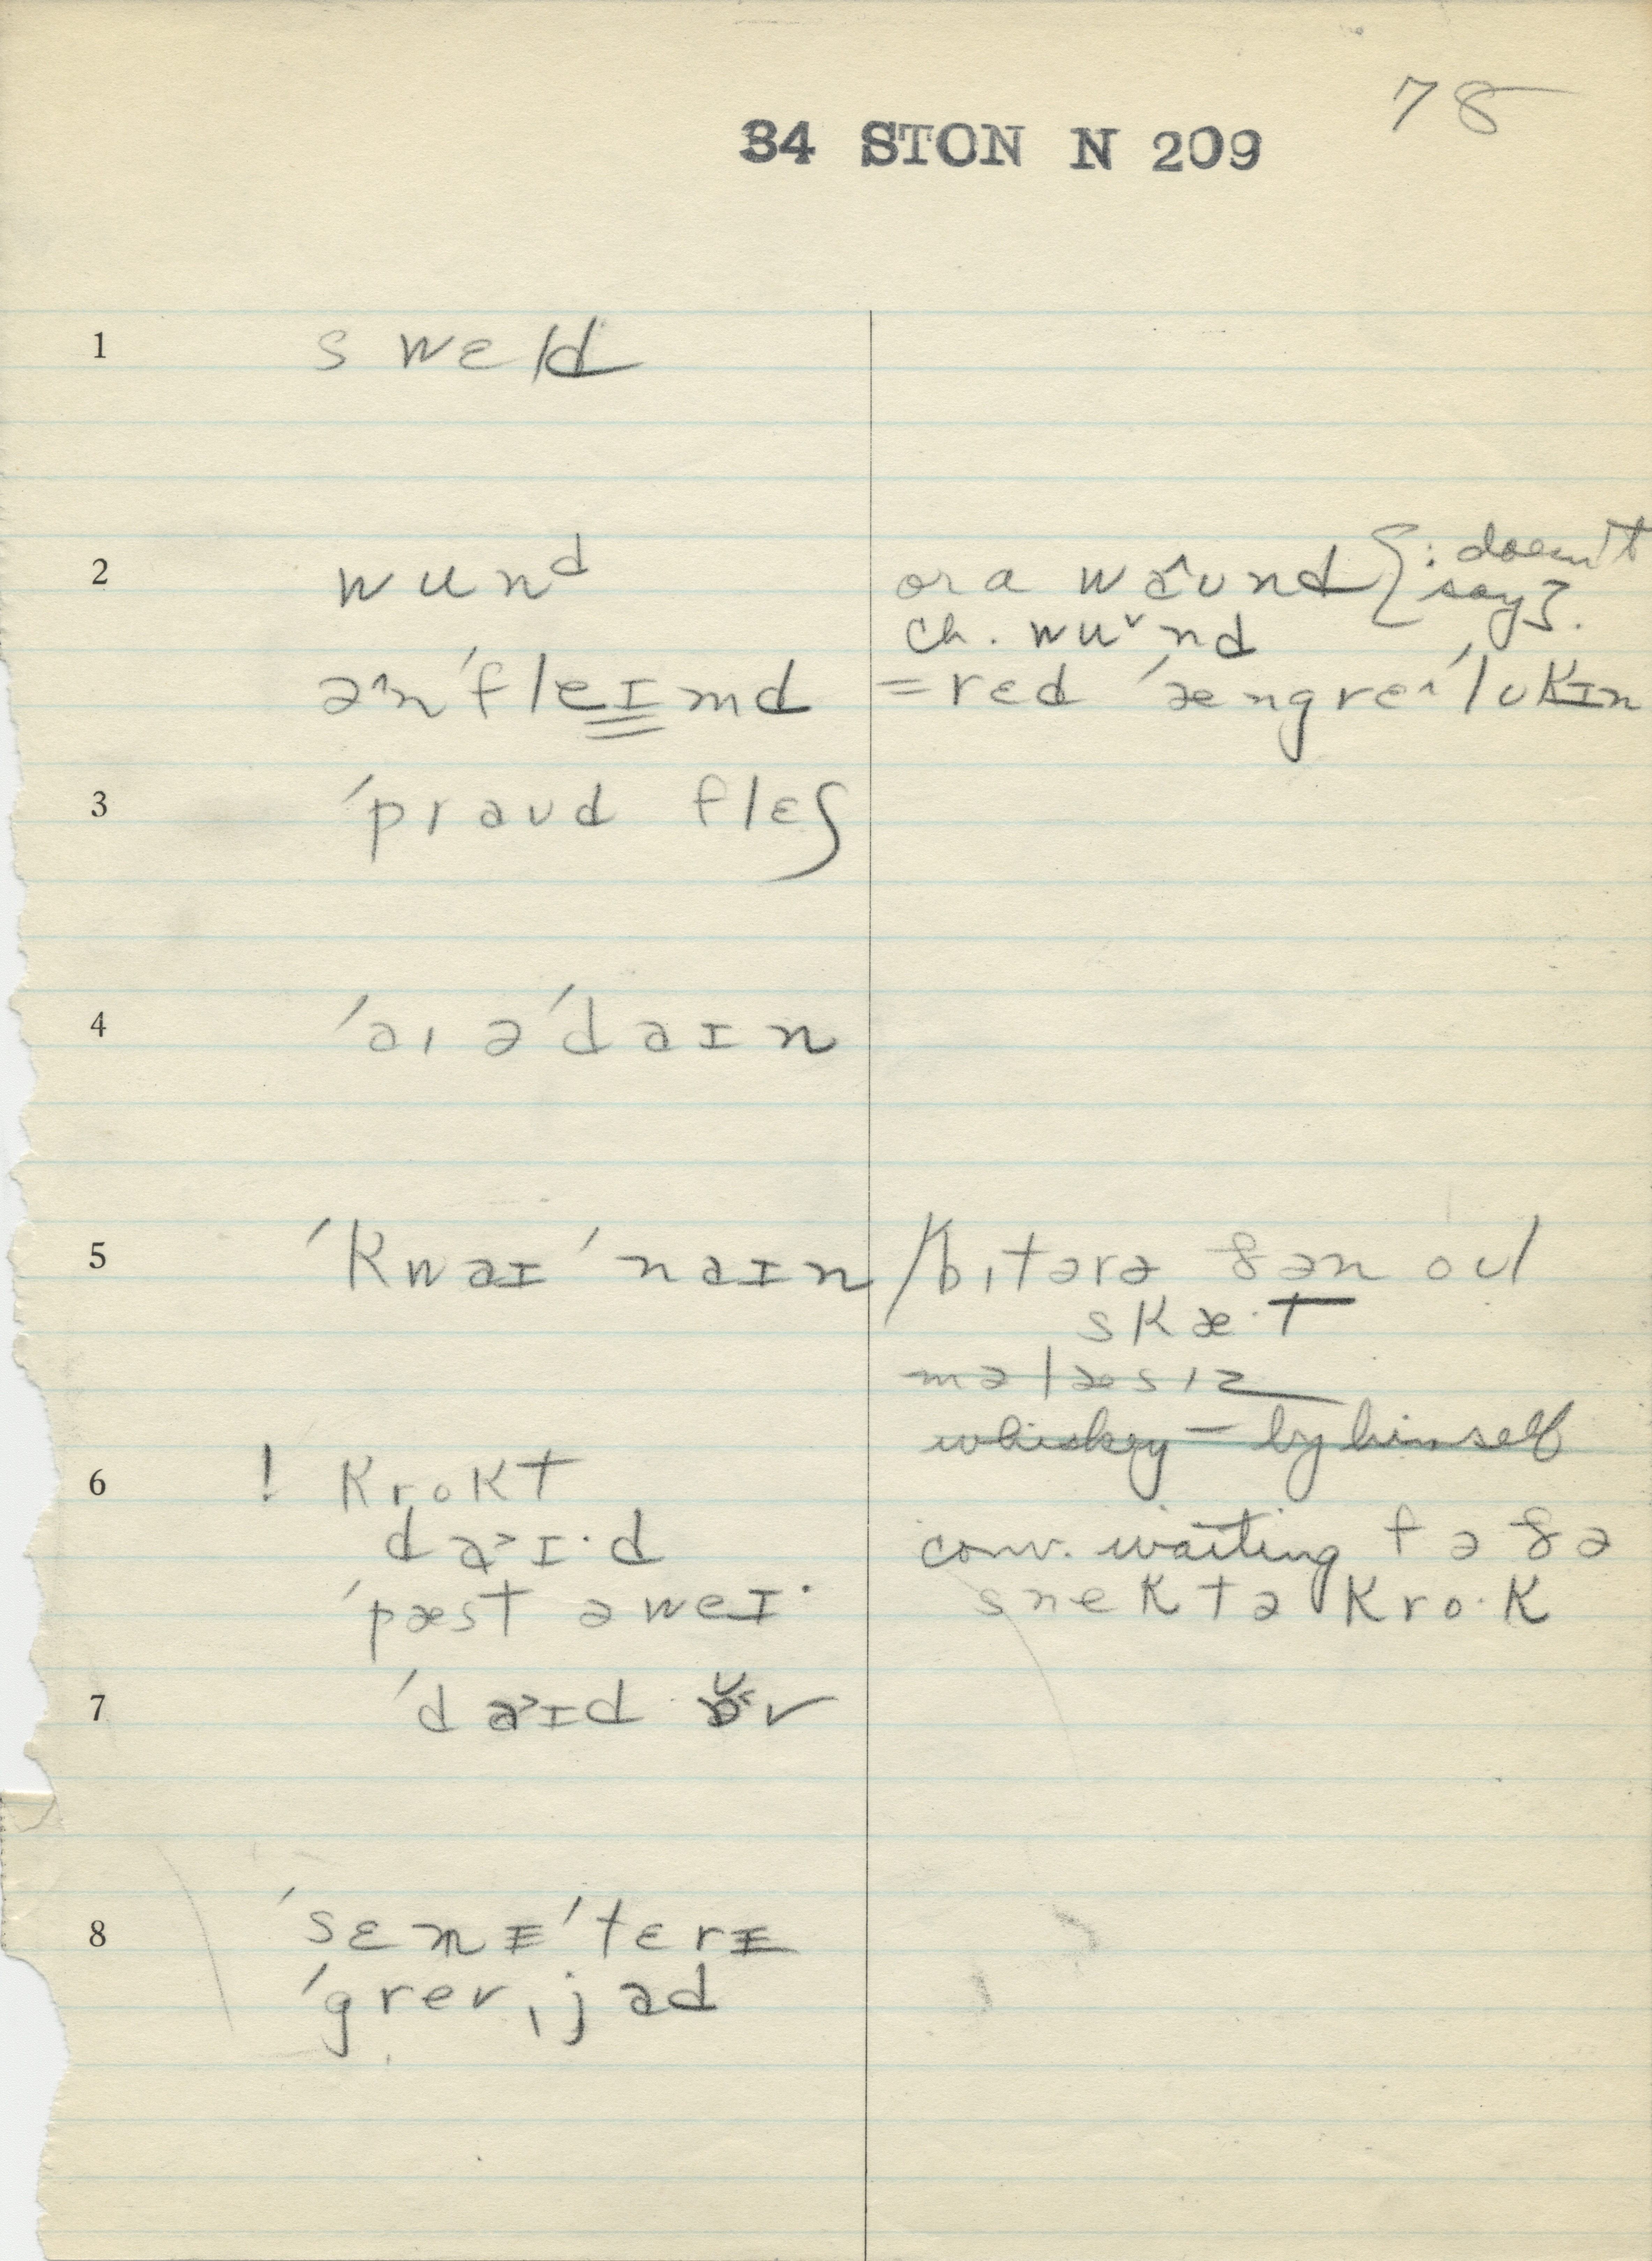 78
34 STON N 209
1 swɛld
2 wunᵈ or a waꞈund {: doesn't say}.
ch. wu˅nd
əꞈn'fleɪmd = rɛd 'ængreꞈ'lukɪn
3 'praud flɛʃ
4 'aɪə'daɪn
5 'kwaɪ'naɪn / bɪtərə ðən oul
skæ·t
məlæsɪz
whiskey – by himself
6 ! krokt
da˃ɪ·d conv. waiting fə ðə
'pæst əweɪ· snek tə kro·k
7 'da˃ɪd
8 'sɛmɪ'tɛrɪ
'grevˌjad